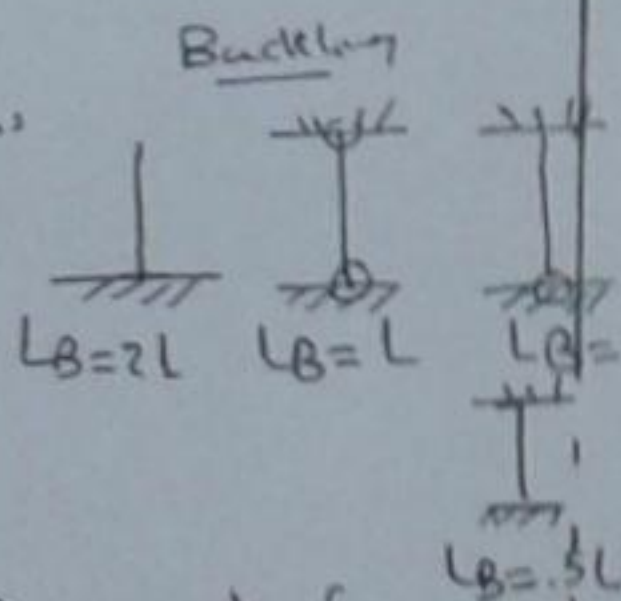 Buckling
LB=2L LB=L LB=
LB=.5L